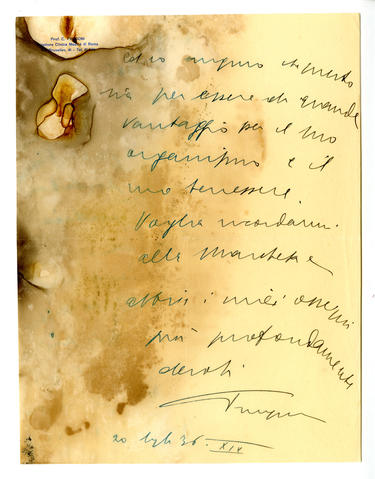 Prof. C.
Clinica Medica di Roma
ed io auguro che questo
per essere di grande
vantaggio per il suo
organismo e il
suo benessere.
Voglia ricordarmi
alla Marchesa e
i miei ossequi
più profondamente
devoti
20 luglio 36. XIV